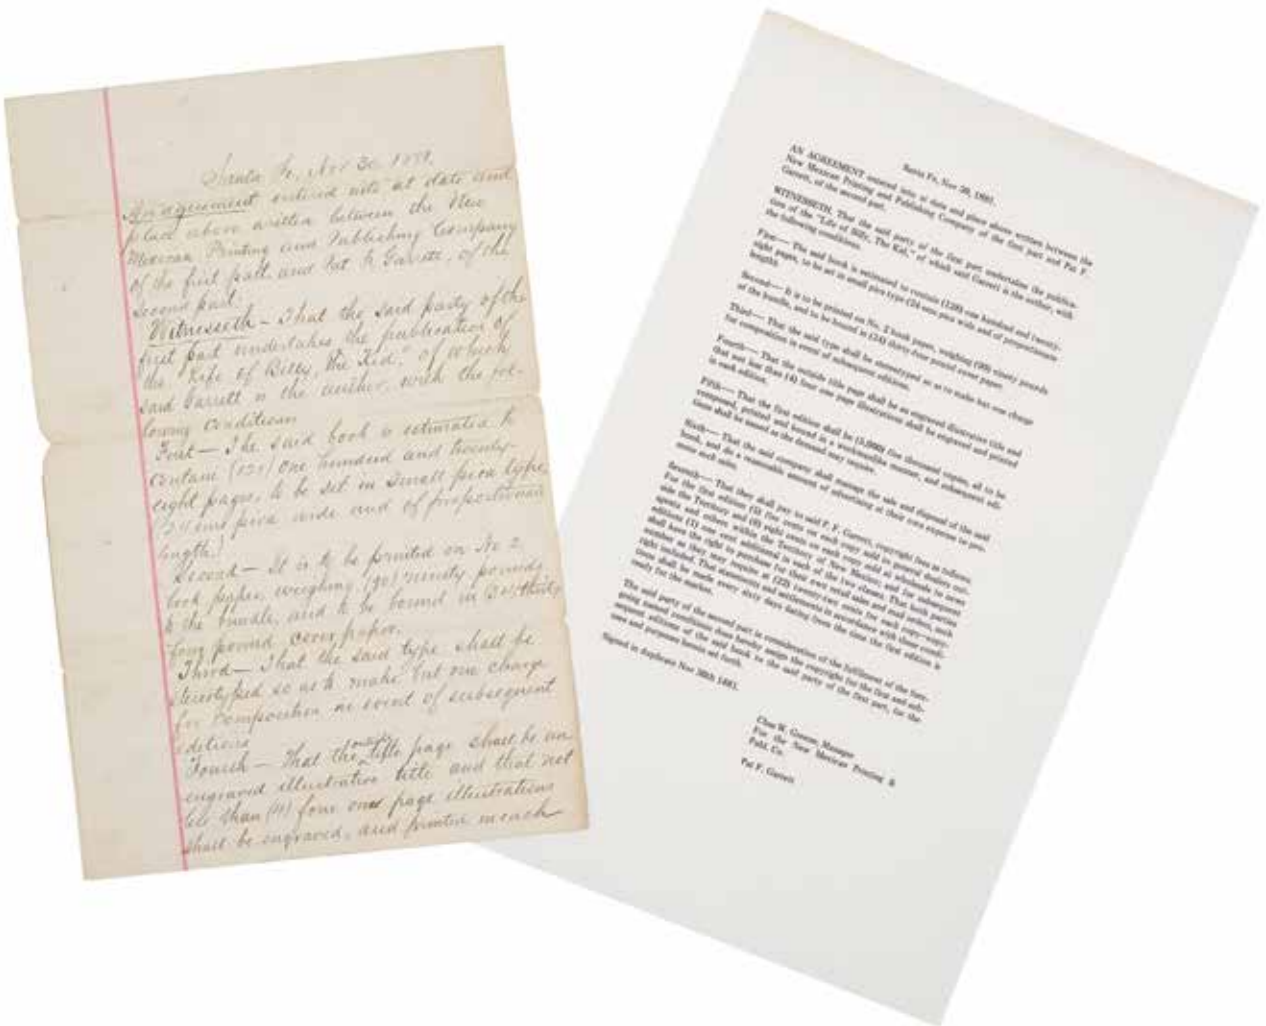 Santa Fe, Nov 30, 1881.
An agreement entered into at date and
place above written between the New
Mexican Printing and Publishing Company
of the first part, and Pat F. Garrett, of the
second part.
Witnesseth – That the said party of the
first part undertakes the publication of
the "Life of Billy, the Kid," of which
said Garrett is the author, with the fol-
lowing conditions
First – The said book is estimated to
contain (128) one hundred and twenty-
eight pages, to be set in Small pica type,
(24 ems pica wide and of proportionate
length)
Second – It is to be printed on No 2
book paper, weighing (90) ninety pounds
to the bundle, and to be bound in (34) thirty
four pound cover paper.
Third – That the said type shall be
stereotyped so as to make but one charge
for composition in event of subsequent
editions
Fourth – That the outside title page shall be an
engraved illustration title and that not
less than (4) four one page illustrations
shall be engraved, and printed in each
Santa Fe, Nov 30, 1881.
AN AGREEMENT entered into at date and place above written between the
New Mexican Printing and Publishing Company of the first part and Pat F.
Garrett, of the second part.
WITNESSETH, That the said party of the first part undertakes the publica-
tion of the "Life of Billy, The Kid," of which said Garrett is the author, with
the following conditions:
First— The said book is estimated to contain (128) one hundred and twenty-
eight pages, to be set in small pica type (24 ems pica wide and of proportionate
length).
Second— It is to be printed on No. 2 book paper, weighing (90) ninety pounds
of the bundle, and to be bound in (34) thirty-four pound cover paper.
Third— That the said type shall be stereotyped so as to make but one charge
for composition in event of subsequent editions.
Fourth— That the outside title page shall be an engraved illustration title and
that not less than (4) four one page illustrations shall be engraved and printed
in each edition.
Fifth— That the first edition shall be (5,000) five thousand copies, all to be
composed, printed and bound in a workmanlike manner, and subsequent edi-
tions shall be issued as the demand may require.
Sixth— That the said company shall manage the sale and disposal of the said
book, and do a reasonable amount of advertising at their own expense to pro-
mote such sales.
Seventh— That they shall pay to said P. F. Garrett, copyright fees as follows:
For the first edition (5) five cents on each copy sold to general dealers out-
side the Territory and (8) eight cents on each copy sold at wholesale to news
agents and others within the Territory of New Mexico; and for subsequent
editions (1) one cent additional in each of the two classes. That both parties
shall have the right to purchase for their own retail sales and mail orders, such
number as they may require at (22) twenty-two cents for each copy—copy-
right included. That statements and settlements in accordance with these condi-
tions shall be made every sixty days dating from the time the first edition is
ready for the market.
The said party of the second part in consideration of the fulfillment of the fore-
going named conditions does hereby assign the copyright for the first and sub-
sequent editions of the said book to the said party of the first part, for the
uses and purposes herein set forth.
Signed in duplicate Nov 30th 1881.
Chas W. Greene, Manager
For the New Mexican Printing &
Publ. Co.
Pat F. Garrett